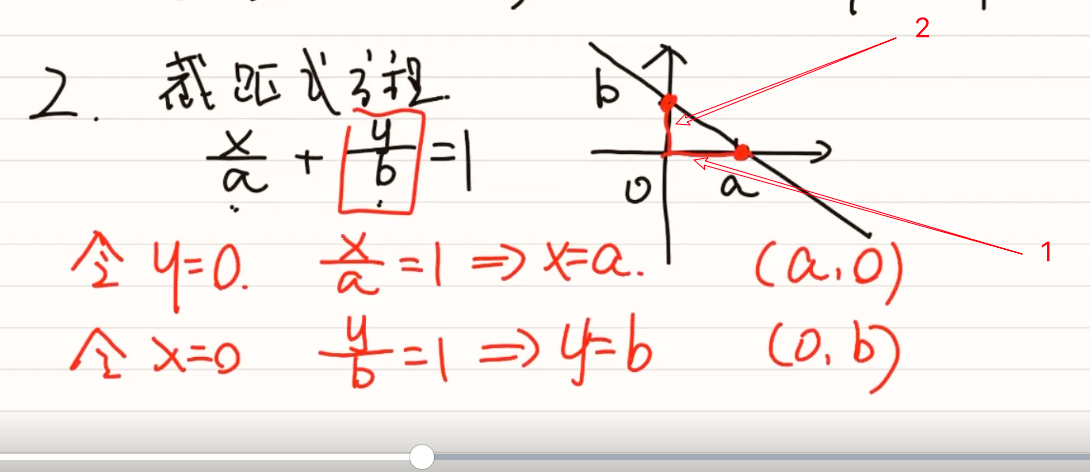 2. 截距式方程.
b
2
x/a + y/b = 1
0 a
令 y=0. x/a = 1 ⇒ x=a. (a,0)
1
令 x=0 y/b = 1 ⇒ y=b (0,b)